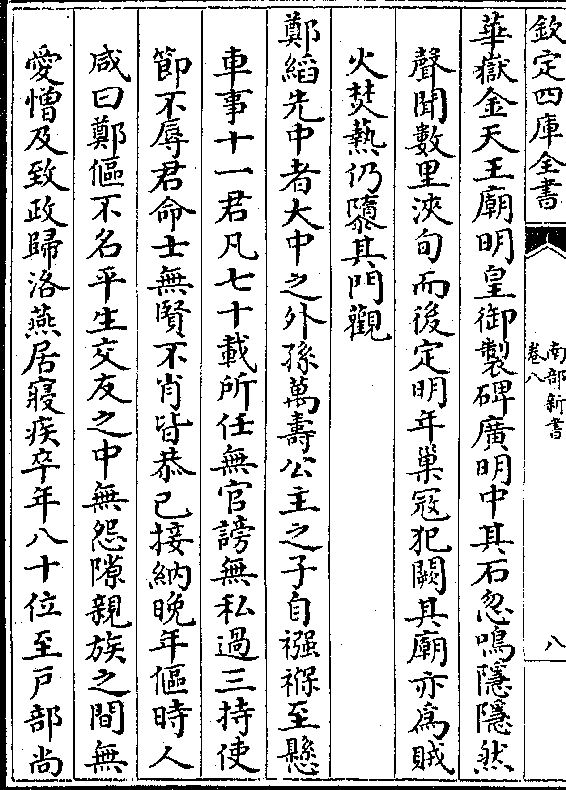 欽定四庫全書
南部新書
卷八
八
華嶽金天王廟明皇御製碑廣明中其石忽鳴隱隱然
聲聞數里浹旬而後定明年巢冦犯闕其廟亦為賊
火焚爇仍隳其門觀
鄭縚先中者大中之外孫萬壽公主之子自襁褓至懸
車事十一君凡七十載所任無官謗無私過三持使
節不辱君命士無賢不肖皆恭已接納晚年傴時人
咸曰鄭傴不名平生交友之中無怨隙親族之間無
愛憎及致政歸洛燕居寢疾卒年八十位至戸部尚